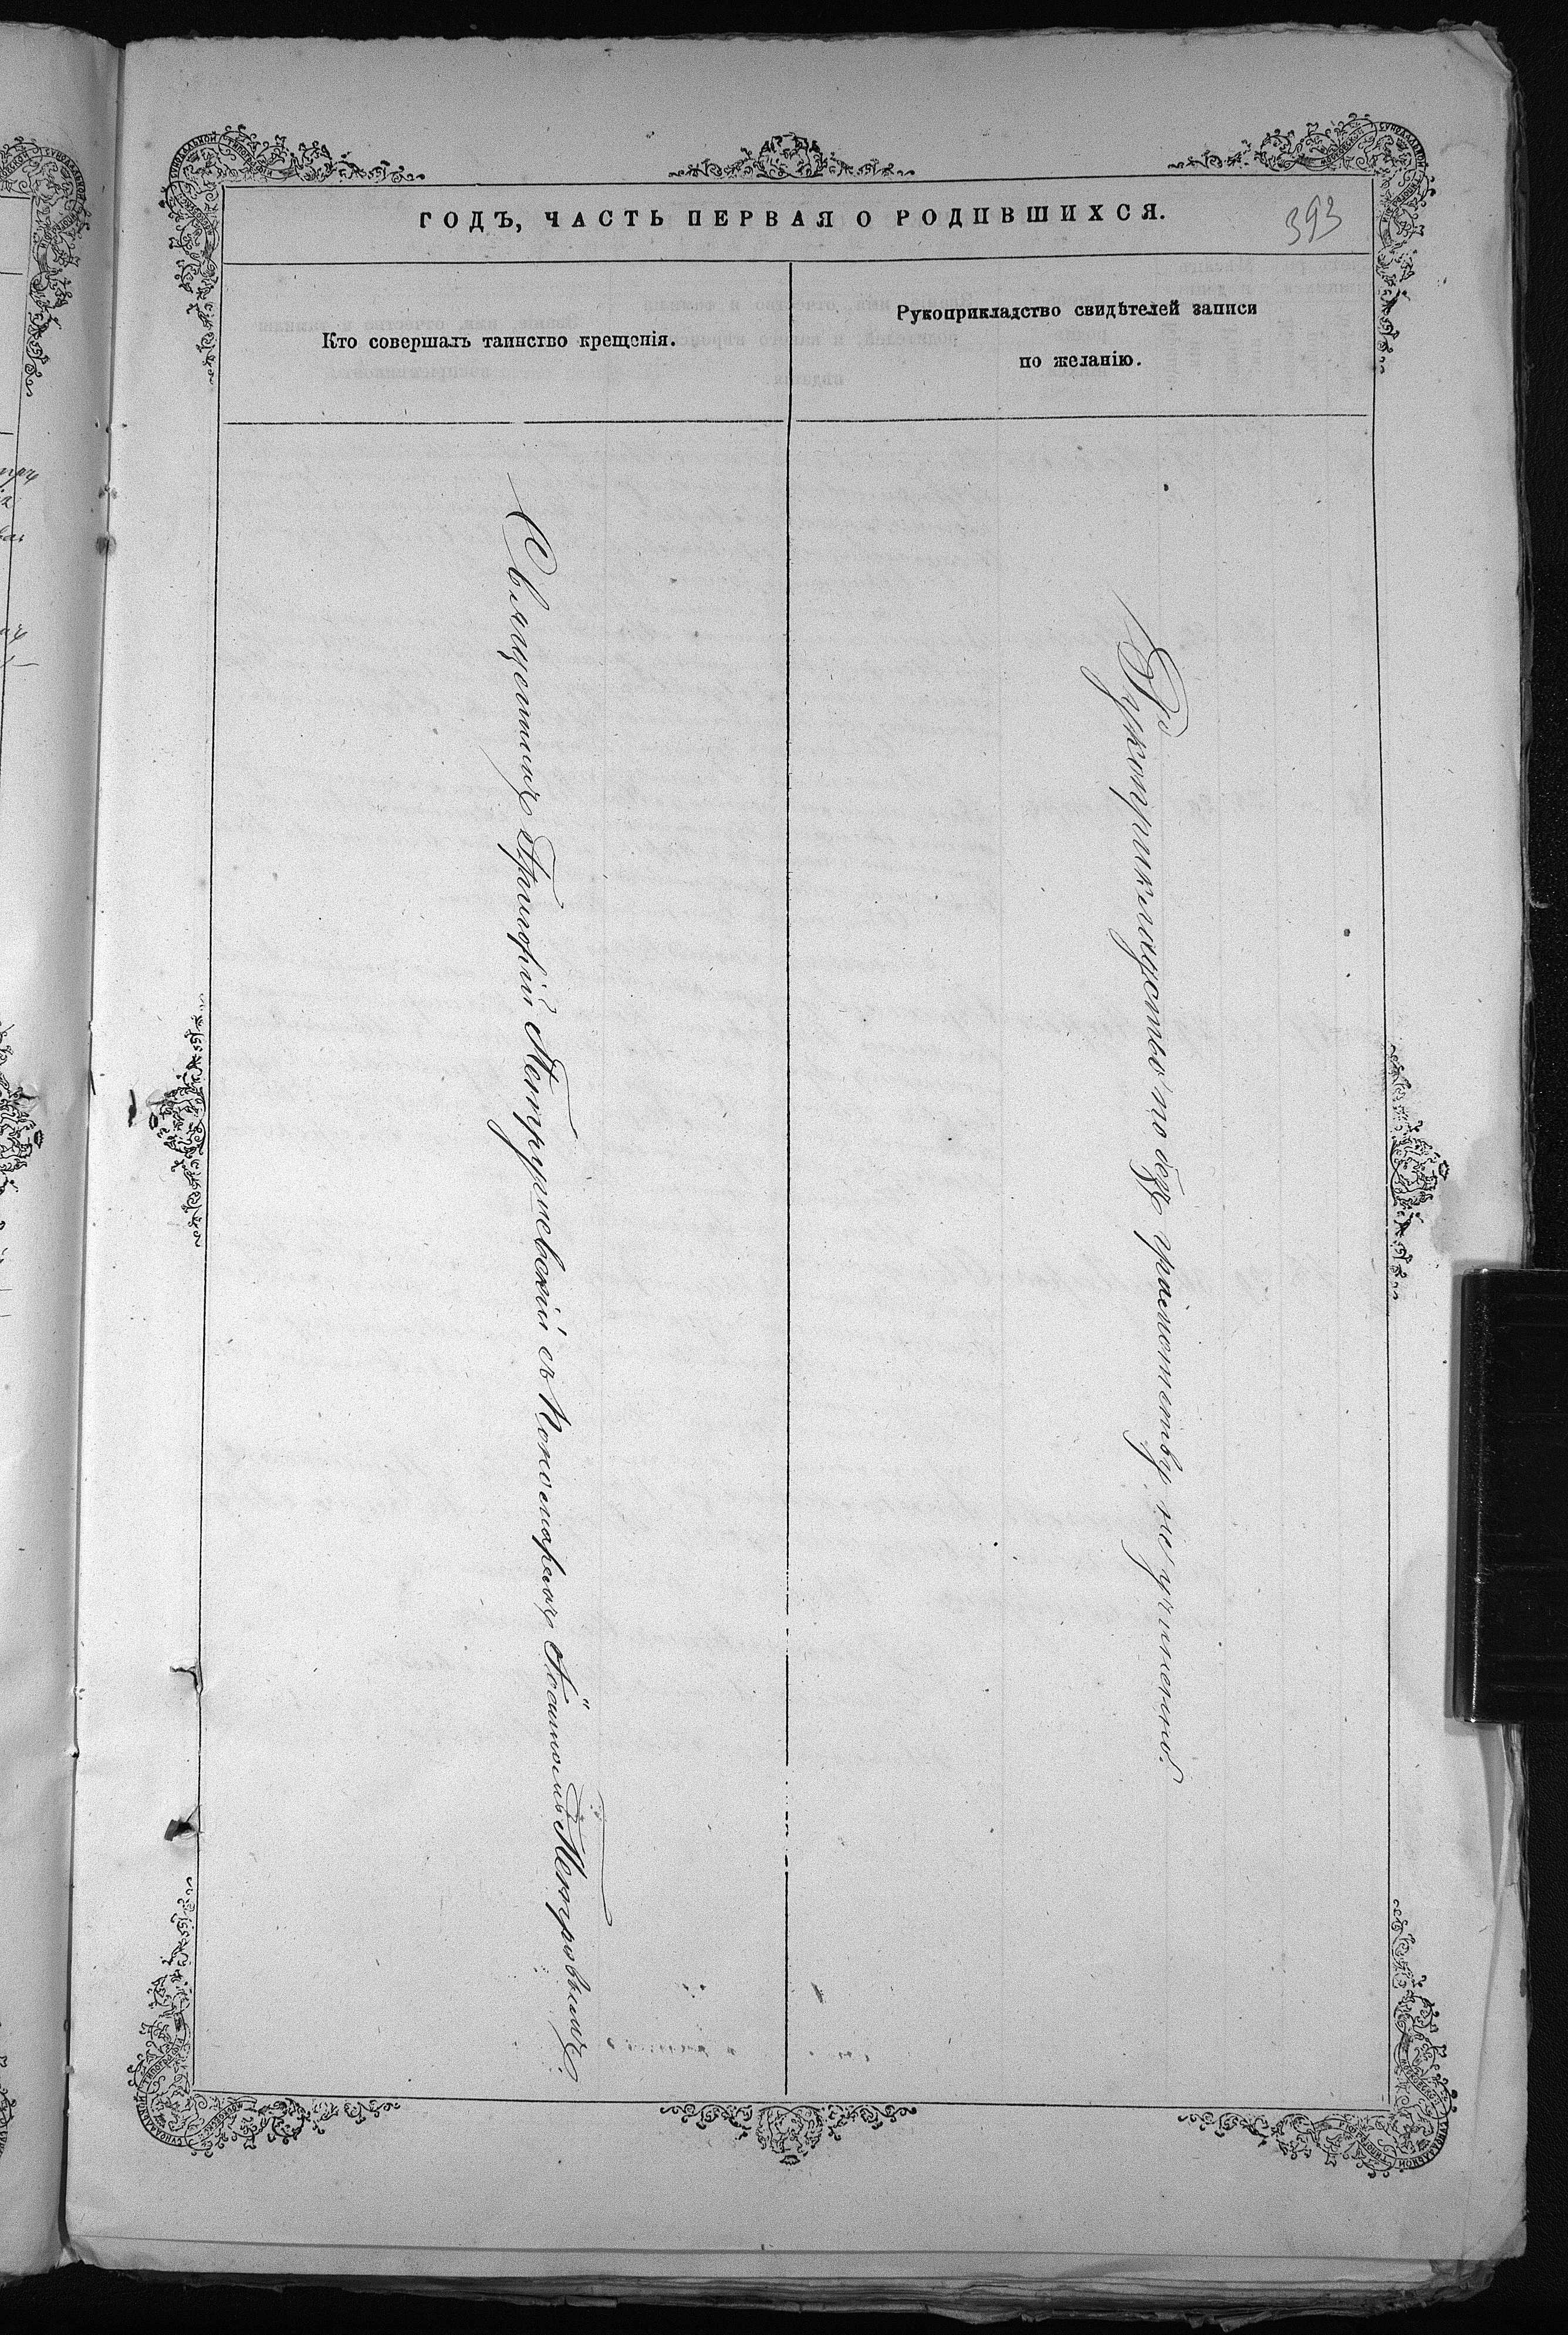 ГОДЪ, ЧАСТЬ ПЕРВАЯ О РОДИВШИХСЯ.
393
Кто совершалъ таинство крещенія.
Рукоприкладство свидѣтелей записи
по желанію.
Священникъ Григорій Петрушевскій съ Пономаремъ Іоанномъ Петровымъ.
Рукоприкладство по безграмотству не учинено.